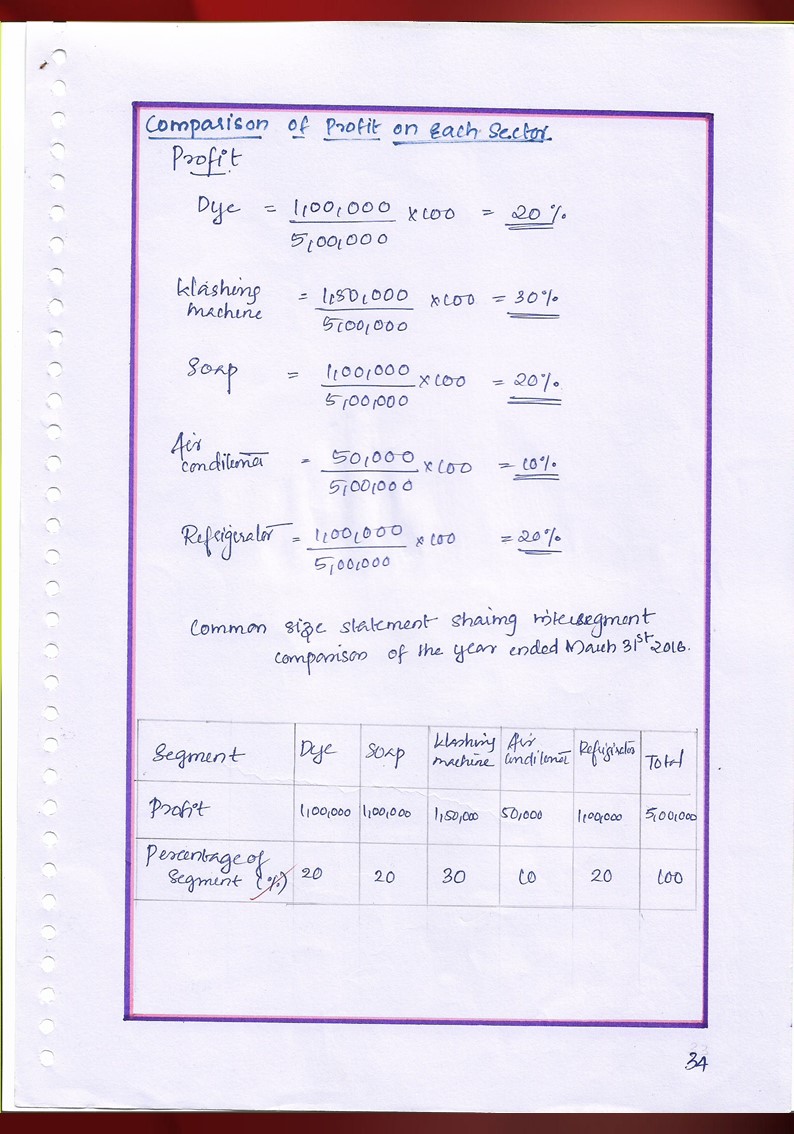 Comparison of Profit on Each Sector
Profit
Dye = 1,00,000 / 5,00,000 × 100 = 20%
Washing machine = 1,50,000 / 5,00,000 × 100 = 30%
Soap = 1,00,000 / 5,00,000 × 100 = 20%
Air conditioner = 50,000 / 5,00,000 × 100 = 10%
Refrigerator = 1,00,000 / 5,00,000 × 100 = 20%
Common size statement showing intersegment
comparison of the year ended March 31st 2016.
Segment Dye Soap Washing machine Air conditioner Refrigirator Total
Profit 1,00,000 1,00,000 1,50,000 50,000 1,00,000 5,00,000
Percentage of Segment (%) 20 20 30 10 20 100
34